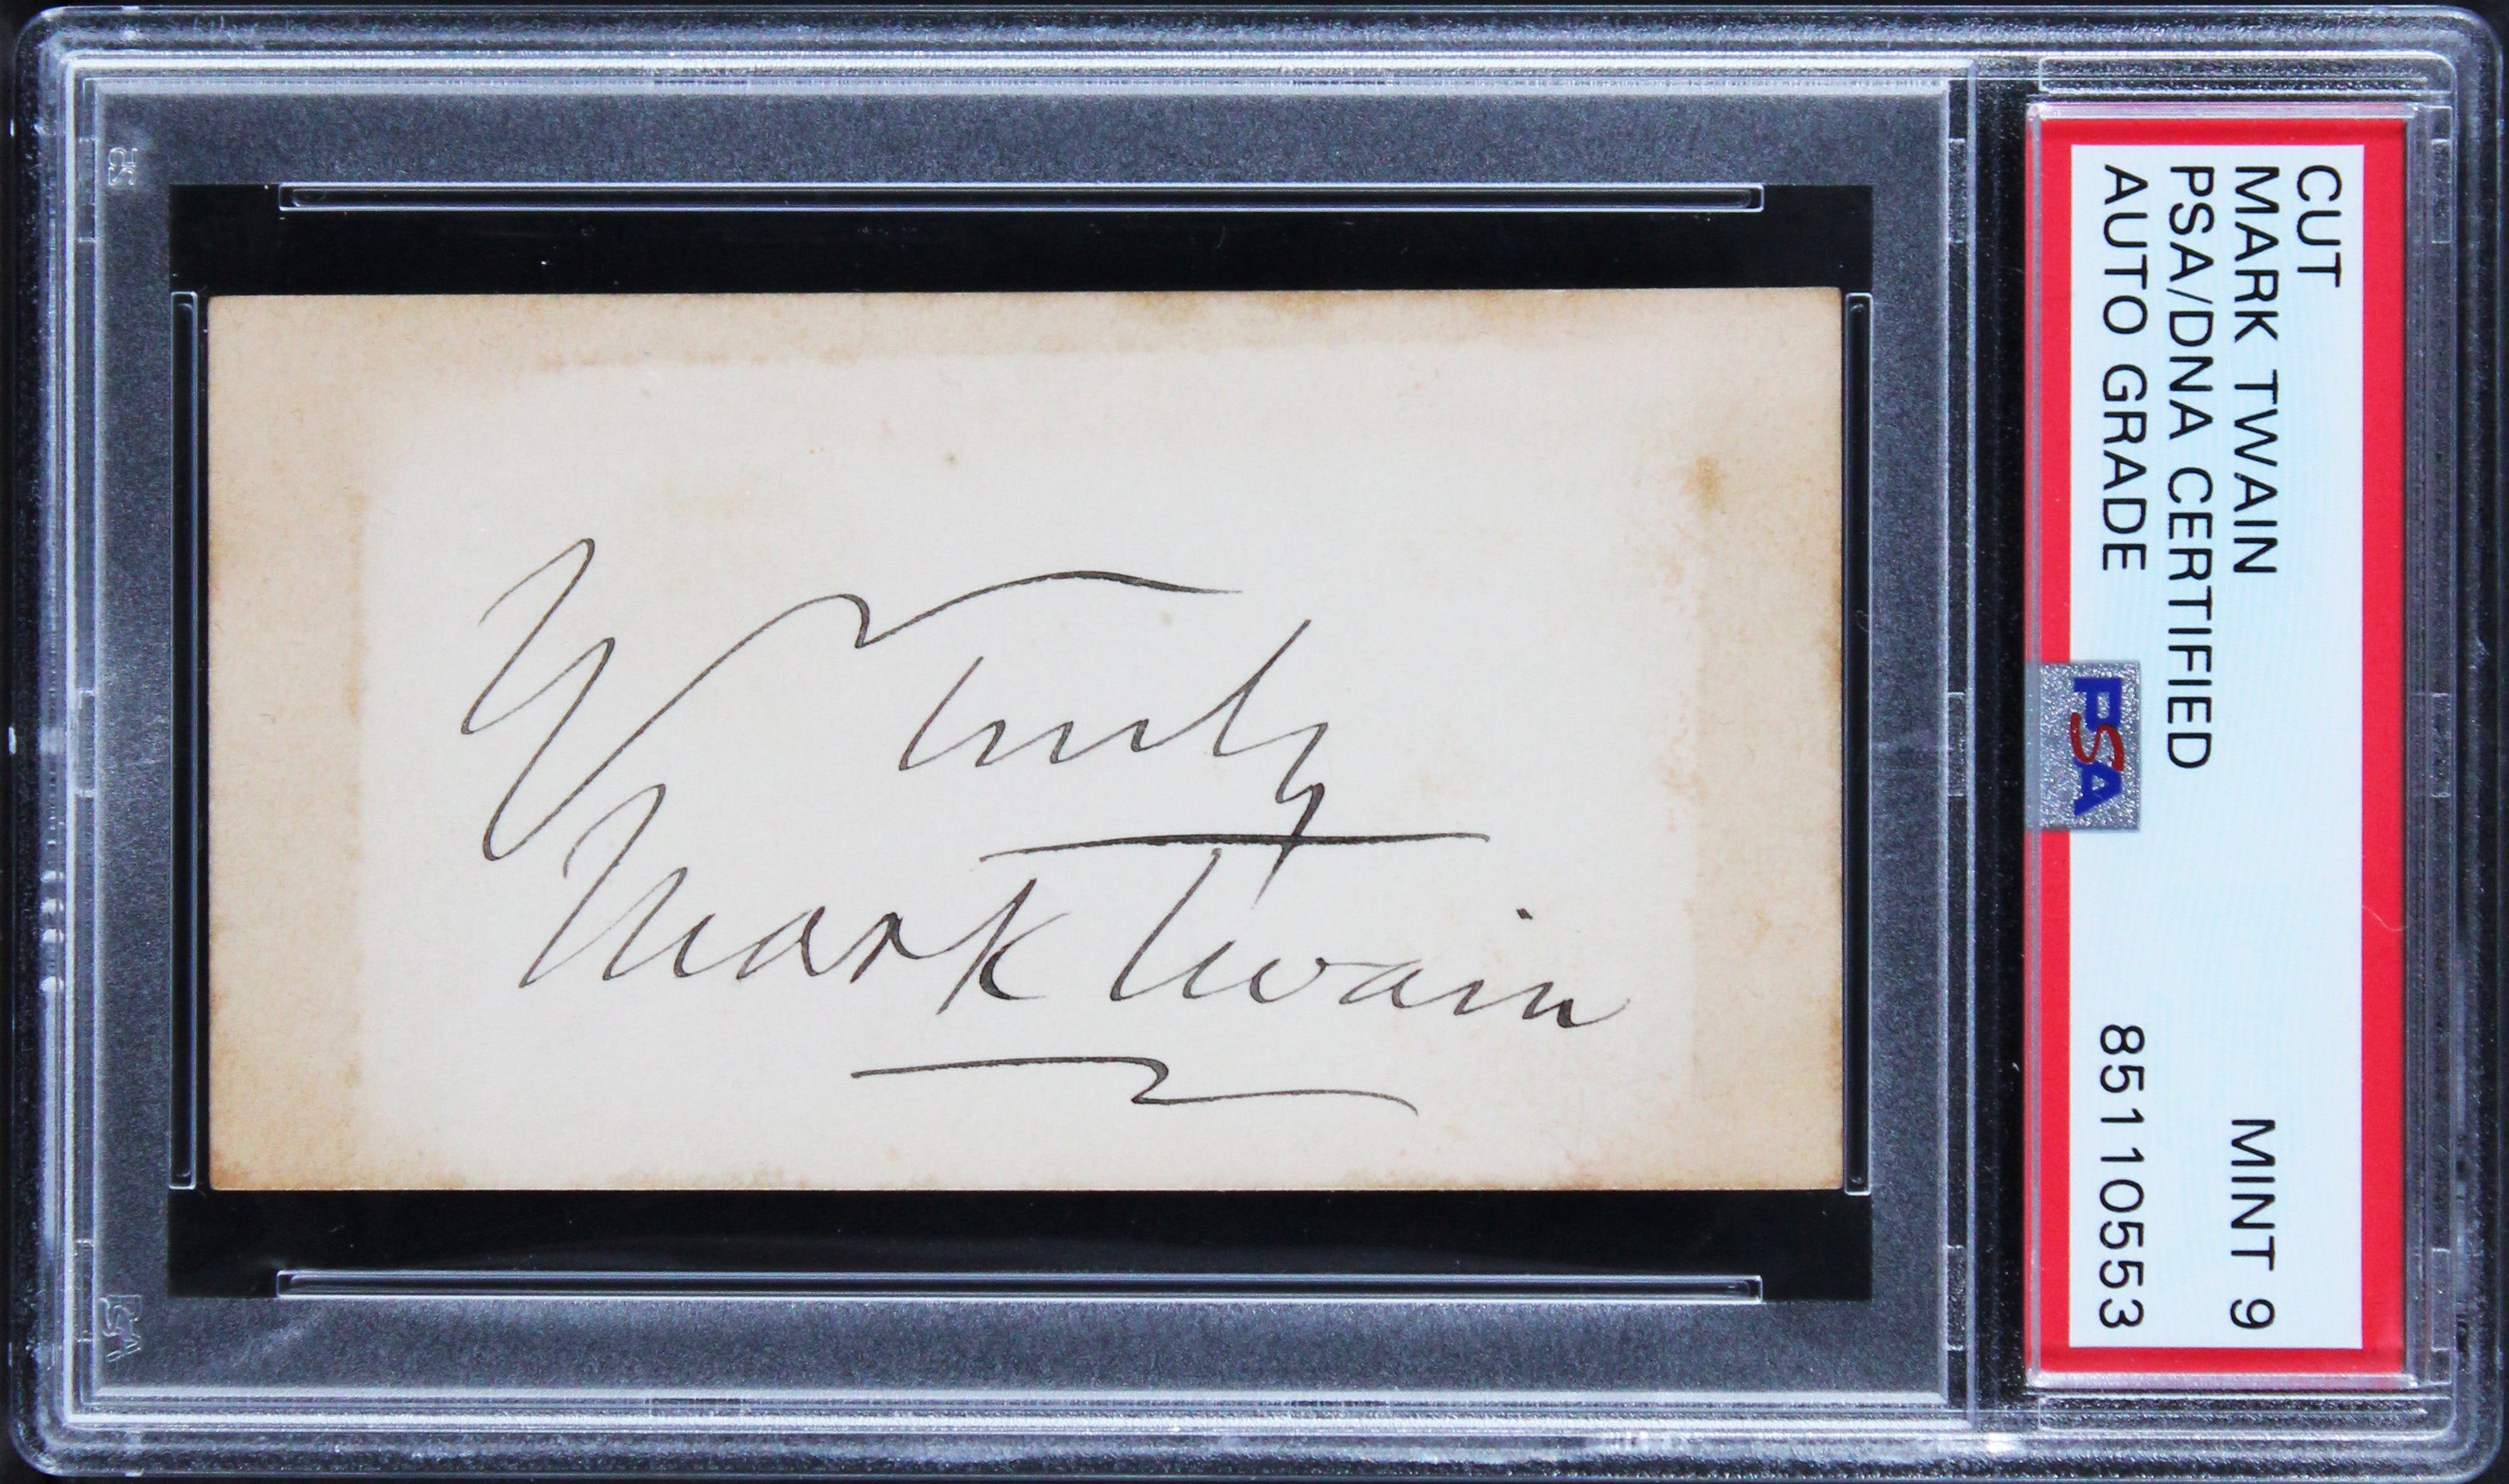 Y Truly
Mark Twain
CUT
MARK TWAIN MINT 9
PSA/DNA CERTIFIED
AUTO GRADE 85110553
PSA